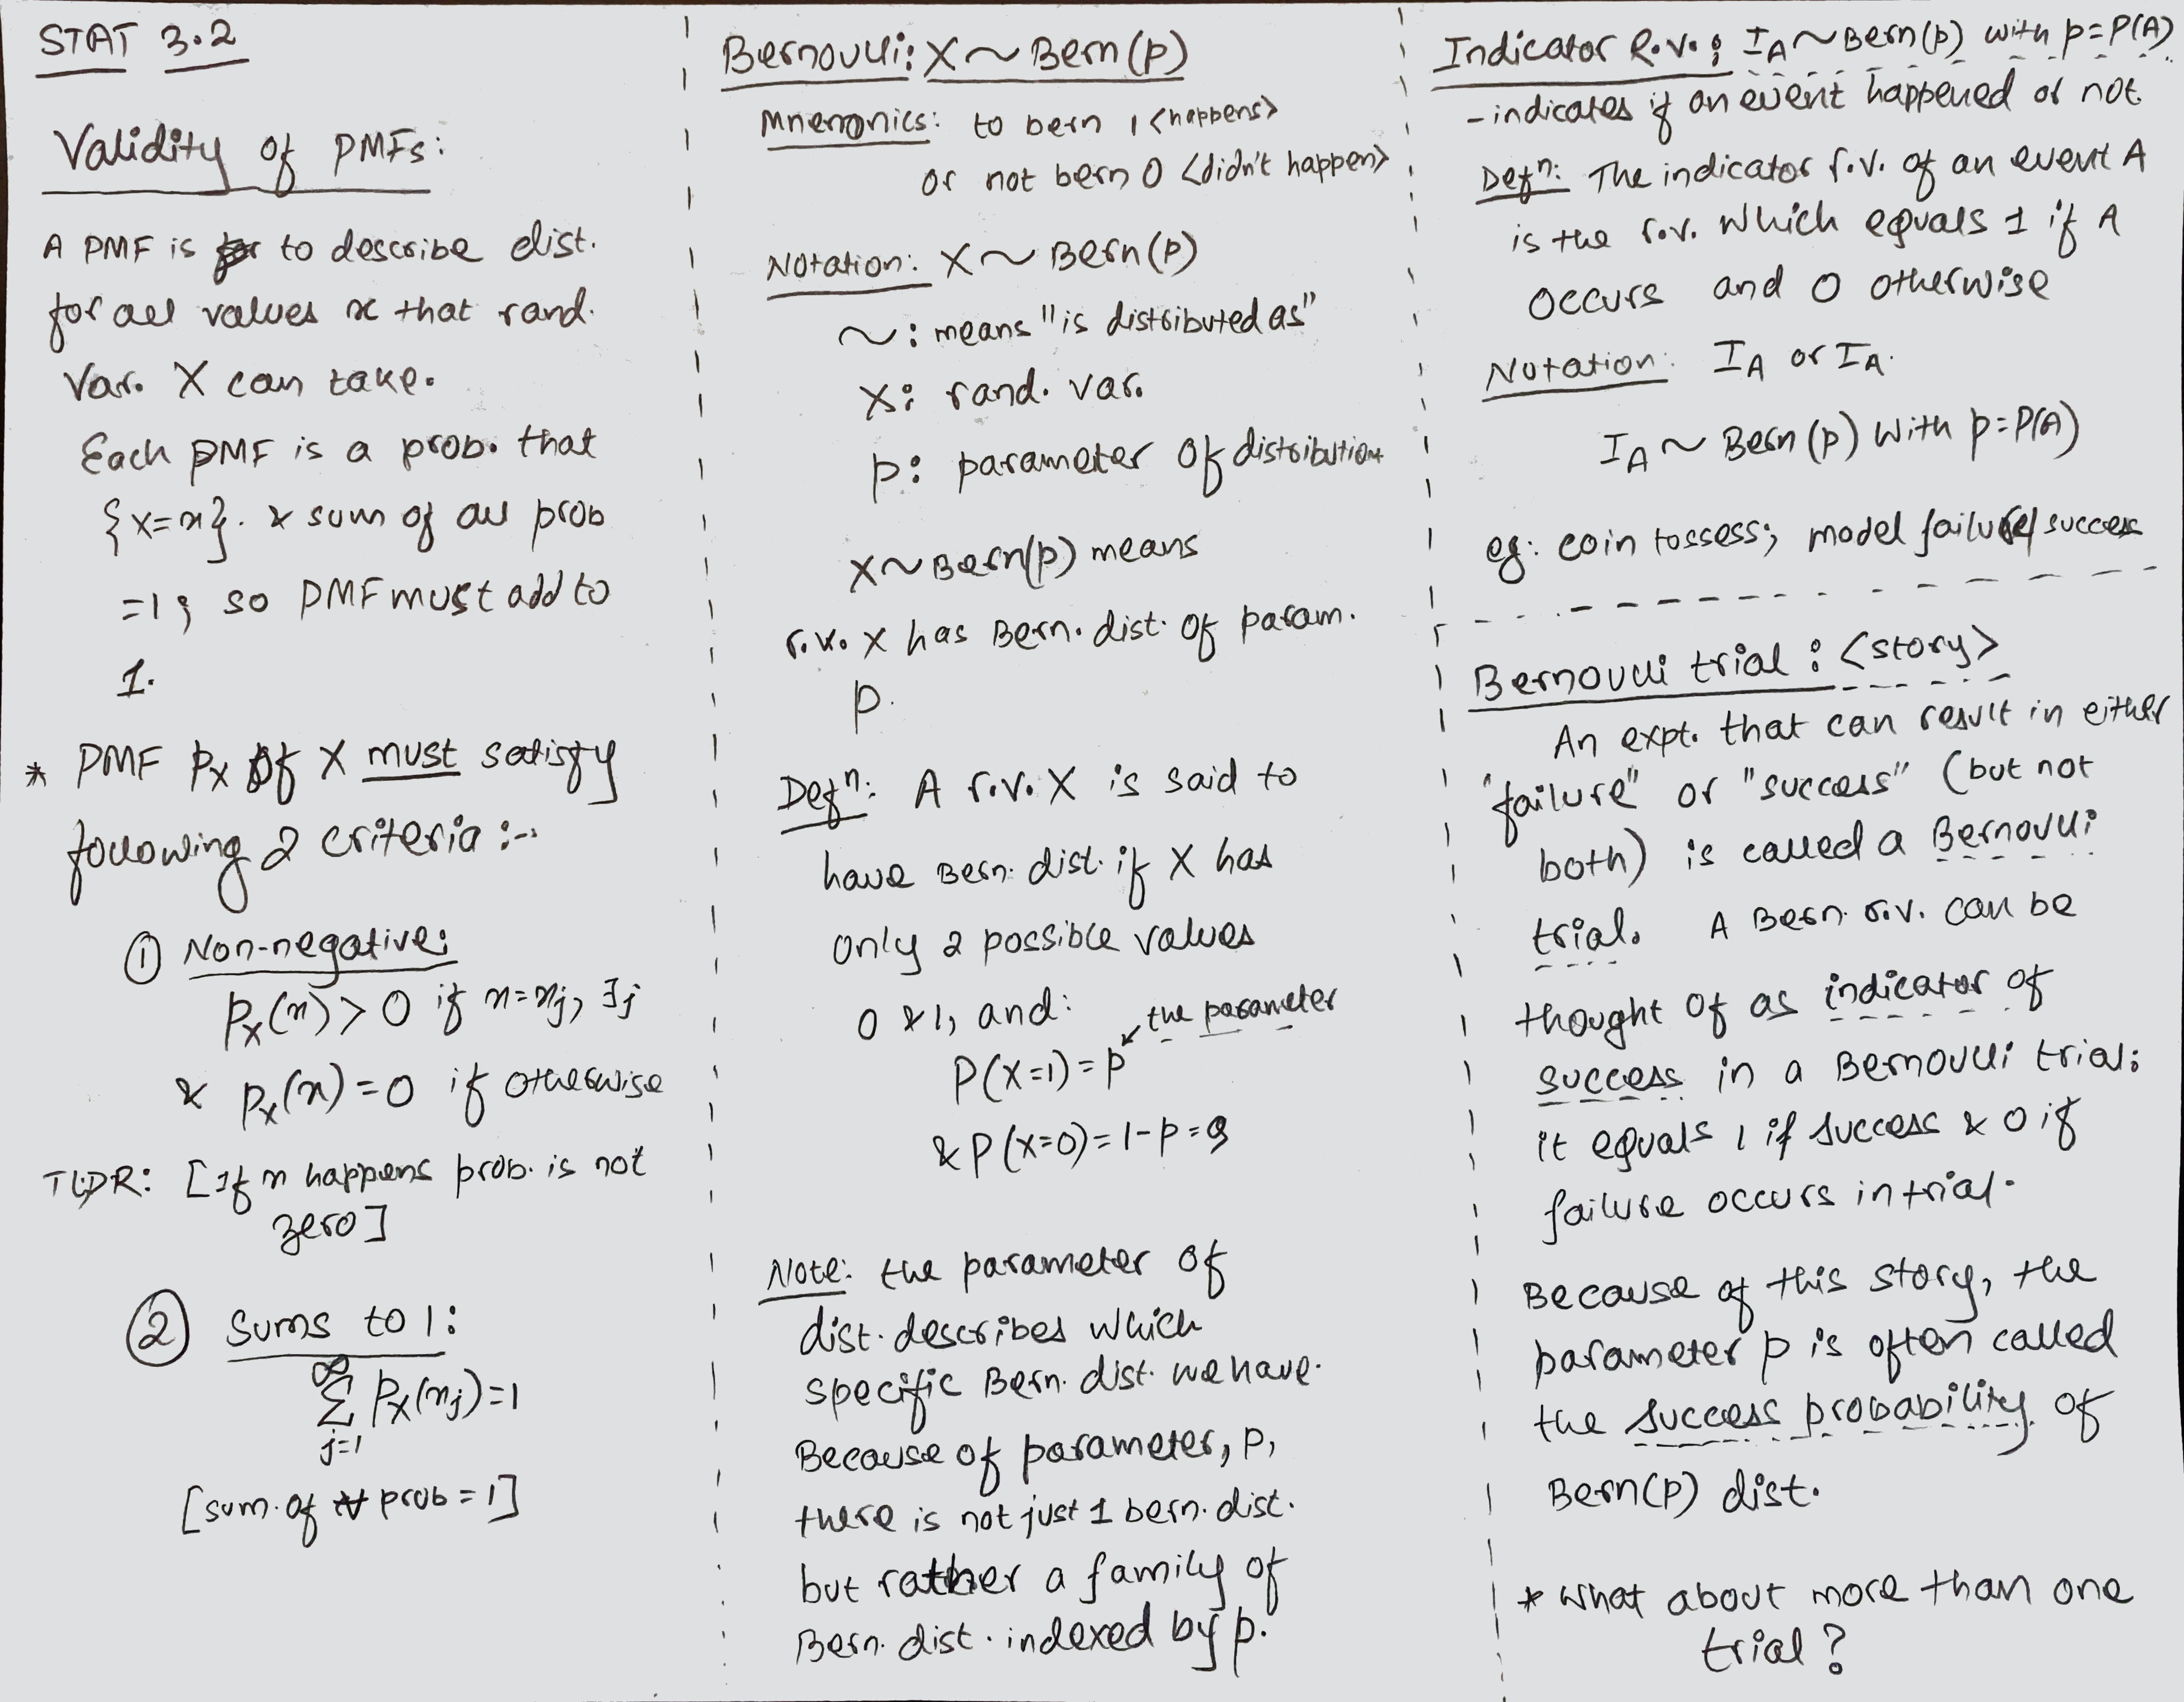 STAT 3.2
Validity of PMFs:
A PMF is to describe dist.
for all values x that rand.
Var. X can take.
Each PMF is a prob. that
{X=x}. & sum of all prob
=1; so PMF must add to
1.
* PMF Px of X must satisfy
following 2 criteria :-
① Non-negative:
Px(x) > 0 if x=xj, ∃j
& Px(x) = 0 if otherwise
TLDR: [If x happens prob. is not
zero]
② Sums to 1:
∞
Σ Px(xj)=1
j=1
[sum. of prob = 1]
Bernoulli: X ~ Bern(p)
Mnemonics: to bern 1 <happens>
or not bern 0 <didn't happen>
Notation: X ~ Bern(p)
~ : means "is distributed as"
X: rand. var.
p: parameter of distribution
X ~ Bern(p) means
r.v. X has Bern. dist. of param.
p.
Defⁿ: A r.v. X is said to
have Bern. dist. if X has
only 2 possible values
0 & 1, and:
the parameter
P(X=1) = p
& P(X=0) = 1-p = q
Note: the parameter of
dist. describes which
specific Bern. dist. we have.
Because of parameter, p,
there is not just 1 bern. dist.
but rather a family of
Bern. dist. indexed by p.
Indicator R.V.: IA ~ Bern(p) with p=P(A)
- indicates if an event happened or not.
Defⁿ: The indicator r.v. of an event A
is the r.v. which equals 1 if A
occurs and 0 otherwise
Notation: IA or IA.
IA ~ Bern(p) with p=P(A)
eg: coin tossess; model failure/success
Bernoulli trial : <story>
An expt. that can result in either
"failure" or "success" (but not
both) is called a Bernoulli
trial. A Bern. r.v. can be
thought of as indicator of
success in a Bernoulli trial:
it equals 1 if success & 0 if
failure occurs in trial.
Because of this story, the
parameter p is often called
the success probability of
Bern(p) dist.
* What about more than one
trial?